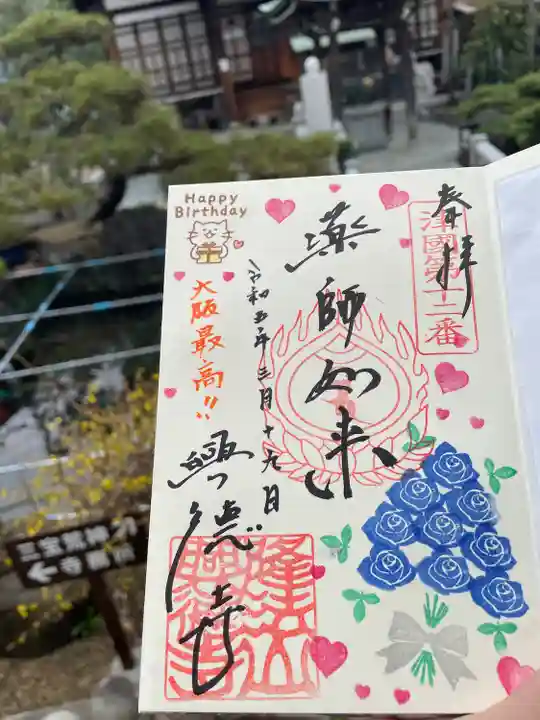 奉拝
津國第十二番
薬師如来
令和五年三月十九日
興德寺
Happy
Birthday
大阪最高!!
三宝荒神
←寺務所